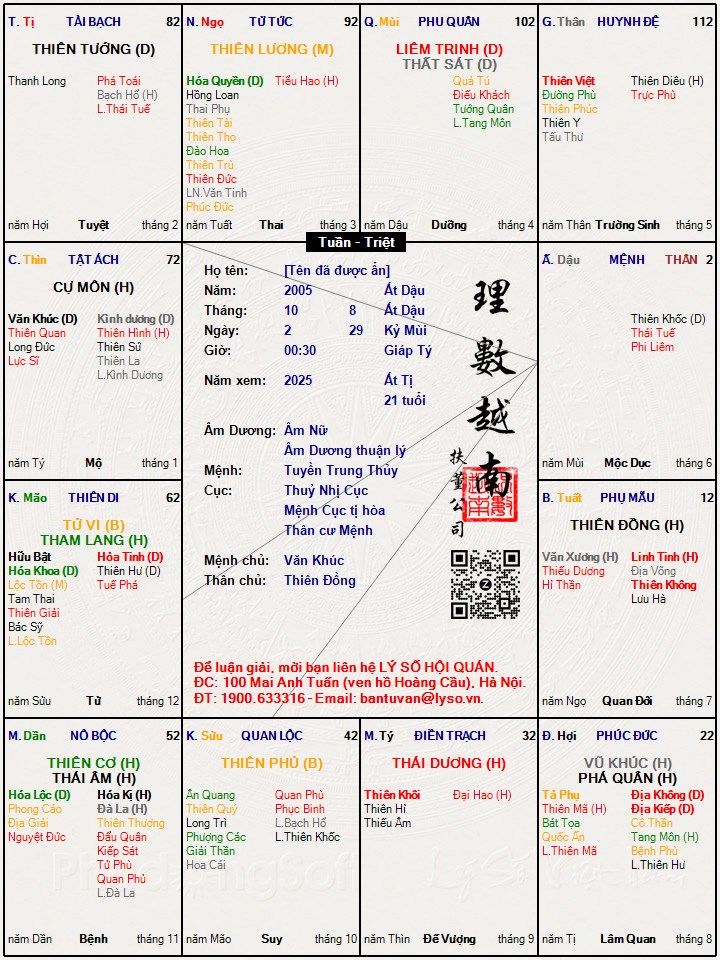 T. Tị TÀI BẠCH 82
THIÊN TƯỚNG (D)
Thanh Long
Phá Toái
Bạch Hổ (H)
L.Thái Tuế
năm Hợi Tuyệt tháng 2
N. Ngọ TỬ TỨC 92
THIÊN LƯƠNG (M)
Hóa Quyền (D)
Hồng Loan
Thai Phụ
Thiên Tài
Thiên Thọ
Đào Hoa
Thiên Trù
Thiên Đức
LN.Văn Tinh
Phúc Đức
Tiểu Hao (H)
năm Tuất Thai tháng 3
Q. Mùi PHU QUÂN 102
LIÊM TRINH (D)
THẤT SÁT (D)
Quả Tú
Điếu Khách
Tướng Quân
L.Tang Môn
năm Dậu Dưỡng tháng 4
G. Thân HUYNH ĐỆ 112
Thiên Việt
Đường Phù
Thiên Phúc
Thiên Y
Tấu Thư
Thiên Diêu (H)
Trực Phù
năm Thân Trường Sinh tháng 5
Tuần - Triệt
C. Thìn TẬT ÁCH 72
CỰ MÔN (H)
Văn Khúc (D)
Thiên Quan
Long Đức
Lực Sĩ
Kình dương (D)
Thiên Hình (H)
Thiên Sứ
Thiên La
L.Kình Dương
năm Tý Mộ tháng 1
Họ tên: [Tên đã được ẩn]
Năm: 2005 Ất Dậu
Tháng: 10 8 Ất Dậu
Ngày: 2 29 Kỷ Mùi
Giờ: 00:30 Giáp Tý
Năm xem: 2025 Ất Tị
21 tuổi
Âm Dương: Âm Nữ
Âm Dương thuận lý
Mệnh: Tuyền Trung Thủy
Cục: Thuỷ Nhị Cục
Mệnh Cục tị hòa
Thân cư Mệnh
Mệnh chủ: Văn Khúc
Thân chủ: Thiên Đồng
理數越南
扶董公司
Để luận giải, mời bạn liên hệ LÝ SỐ HỘI QUÁN.
ĐC: 100 Mai Anh Tuấn (ven hồ Hoàng Cầu), Hà Nội.
ĐT: 1900.633316 - Email: bantuvan@lyso.vn.
Ấ. Dậu MỆNH THÂN 2
Thiên Khốc (D)
Thái Tuế
Phi Liêm
năm Mùi Mộc Dục tháng 6
K. Mão THIÊN DI 62
TỬ VI (B)
THAM LANG (H)
Hữu Bật
Hóa Khoa (D)
Lộc Tồn (M)
Tam Thai
Thiên Giải
Bác Sỹ
L.Lộc Tồn
Hỏa Tinh (D)
Thiên Hư (D)
Tuế Phá
năm Sửu Tử tháng 12
B. Tuất PHỤ MẪU 12
THIÊN ĐỒNG (H)
Văn Xương (H)
Thiếu Dương
Hỉ Thần
Linh Tinh (H)
Địa Võng
Thiên Không
Lưu Hà
năm Ngọ Quan Đới tháng 7
M. Dần NÔ BỘC 52
THIÊN CƠ (H)
THÁI ÂM (H)
Hóa Lộc (D)
Phong Cáo
Địa Giải
Nguyệt Đức
Hóa Kị (H)
Đà La (H)
Thiên Thương
Đẩu Quân
Kiếp Sát
Tử Phù
Quan Phủ
L.Đà La
năm Dần Bệnh tháng 11
K. Sửu QUAN LỘC 42
THIÊN PHỦ (B)
Ân Quang
Thiên Quý
Long Trì
Phượng Các
Giải Thần
Hoa Cái
Quan Phù
Phục Binh
L.Bạch Hổ
L.Thiên Khốc
năm Mão Suy tháng 10
M. Tý ĐIỀN TRẠCH 32
THÁI DƯƠNG (H)
Thiên Khôi
Thiên Hỉ
Thiếu Âm
Đại Hao (H)
năm Thìn Đế Vượng tháng 9
Đ. Hợi PHÚC ĐỨC 22
VŨ KHÚC (H)
PHÁ QUÂN (H)
Tả Phụ
Thiên Mã (H)
Bát Tọa
Quốc Ấn
L.Thiên Mã
Địa Không (D)
Địa Kiếp (D)
Cô Thần
Tang Môn (H)
Bệnh Phù
L.Thiên Hư
năm Tị Lâm Quan tháng 8